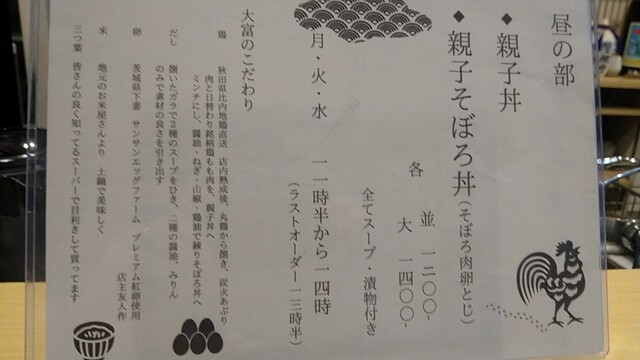 昼の部
◆親子丼
◆親子そぼろ丼(そぼろ肉卵とじ)
各 並 一二〇〇-
大 一四〇〇-
全てスープ・漬物付き
月・火・水 一一時半から一四時
(ラストオーダー一三時半)
大富のこだわり
鶏 秋田県比内地鶏直送 店内熟成後、丸鶏から捌き、炭火あぶり
肉と日替わり銘柄鶏もも肉を、親子丼へ
ミンチにし、醤油・ねぎ・山椒・鶏油で練りそぼろ丼へ
だし 捌いたガラで2種のスープをひき、二種の醤油、みりん
のみで素材の良さを引き出す
卵 茨城県下妻 サンサンエッグファーム プレミアム紅卵使用
店主友人作
米 地元のお米屋さんより 土鍋で美味しく
三つ葉 皆さんの良く知ってるスーパーで目利きして買ってます